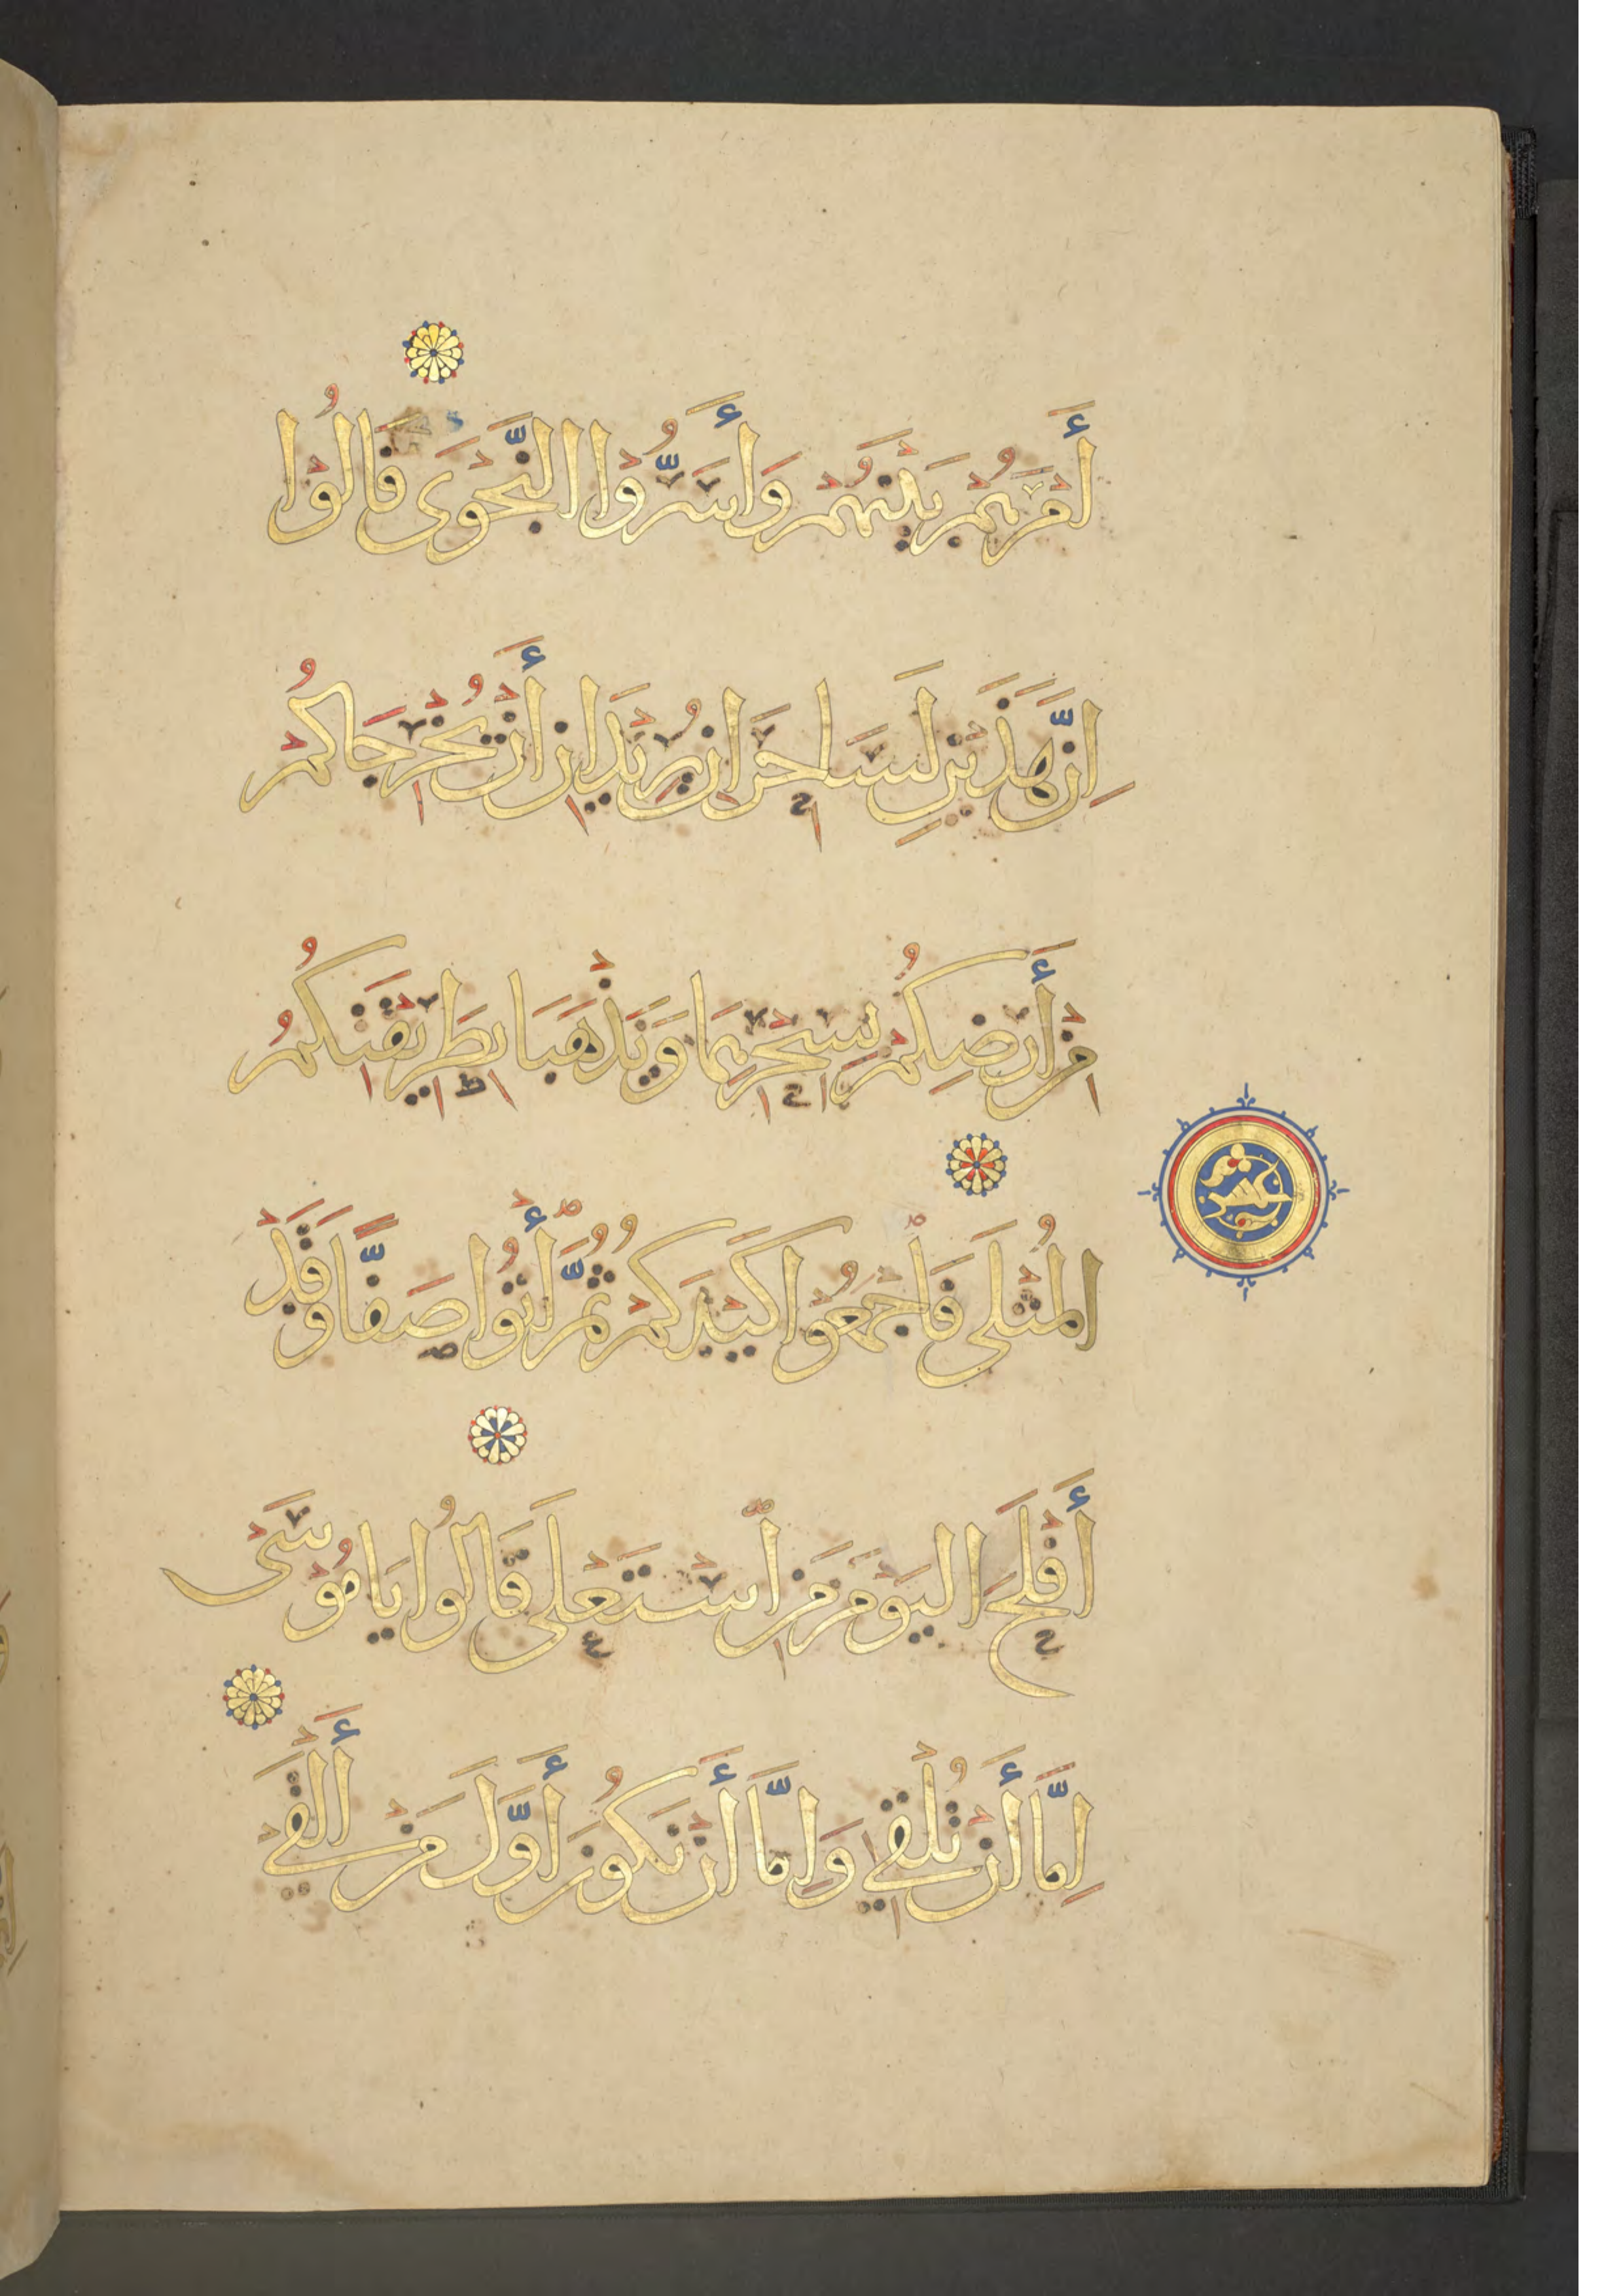 أَمْرَهُمْ بَيْنَهُمْ وَأَسَرُّوْا النَّجْوَى قَالُوْا
اِنَّ هَذَيْنِ لَسَاحِرَانِ يُرِيْدَانِ أَنْ تُخْرِجَاكُمْ
مِنْ أَرْضِكُمْ بِسِحْرِهِمَا وَيَذْهَبَا بِطَرِيْقَتِكُمُ
عشر
الْمُثْلَى فَاجْمَعُوْا كَيْدَكُمْ ثُمَّ اْئتُوا صَفًّا وَقَدْ
أَفْلَحَ الْيَوْمَ مَنِ اسْتَعْلَى قَالُوا يَامُوْسَى
اِمَّا أَنْ تُلْقِيَ وَاِمَّا أَنْ نَكُوْنَ أَوَّلَ مَنْ أَلْقَى